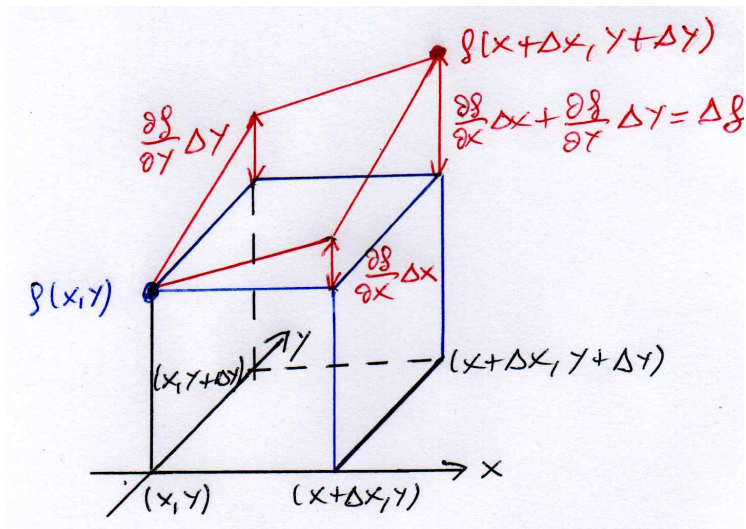 f(x+Δx, y+Δy)
∂f/∂y Δy
∂f/∂x Δx + ∂f/∂y Δy = Δf
∂f/∂x Δx
f(x,y)
y
(x, y+Δy)
(x+Δx, y+Δy)
x
(x,y)
(x+Δx,y)